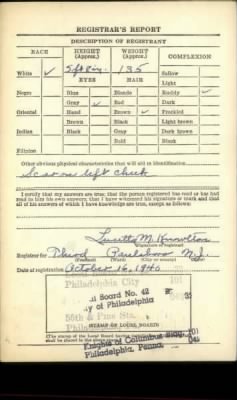 REGISTRAR'S REPORT
DESCRIPTION OF REGISTRANT
RACE HEIGHT (Approx.) WEIGHT (Approx.) COMPLEXION
White ✓ 5 ft 135 Sallow
EYES HAIR Light
Negro Blue Blonde Ruddy ✓
Gray ✓ Red Dark
Oriental Hazel Brown ✓ Freckled
Brown Black Light brown
Indian Black Gray Dark brown
Bald Black
Filipino
Other obvious physical characteristics that will aid in identification
Scar on left cheek
I certify that my answers are true; that the person registered has read or has had
read to him his own answers; that I have witnessed his signature or mark and that
all of his answers of which I have knowledge are true, except as follows:
Lucetta M. Knowlton
Registrar for Third Paulsboro N.J.
Date of registration October 16, 1940
Philadelphia City 101
Board No. 42
of Philadelphia
56th & Pine Sts.
Philadelphia, Penna.
STAMP OF LOCAL BOARD
(The stamp of the Local Board having
shall be placed in the above space)
Knights of Columbus Bldg. 101
Philadelphia, Penna. 045